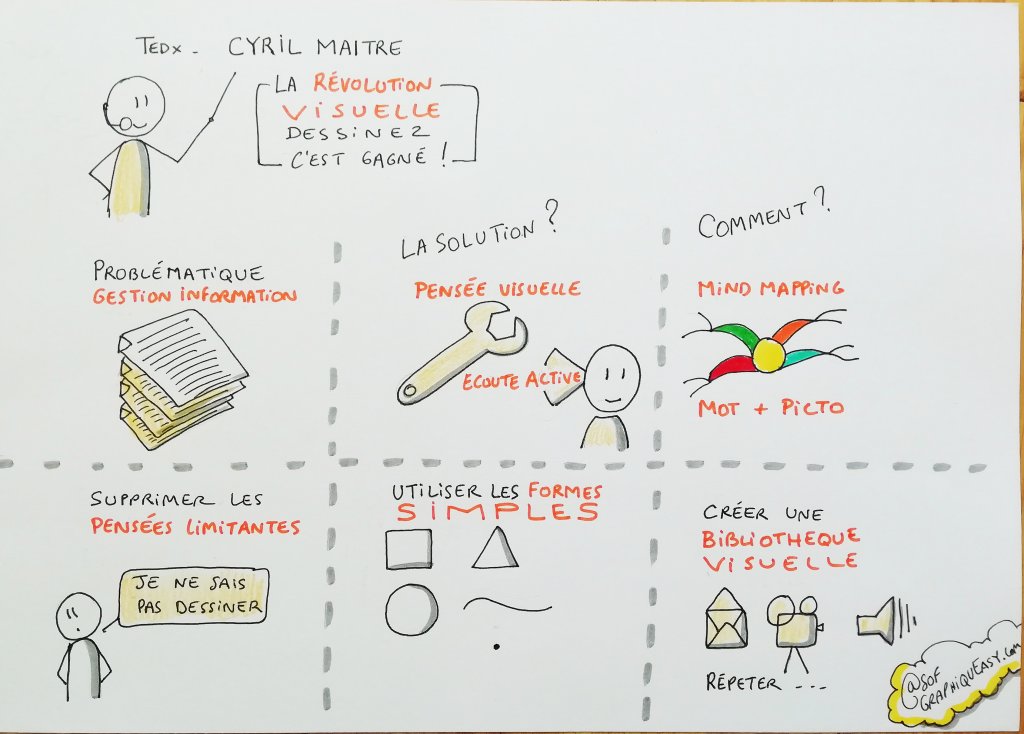 TEDx - CYRIL MAITRE
LA RÉVOLUTION
VISUELLE
DESSINEZ
C'EST GAGNÉ !
PROBLÉMATIQUE
GESTION INFORMATION
LA SOLUTION ?
PENSÉE VISUELLE
ECOUTE ACTIVE
COMMENT ?
MIND MAPPING
MOT + PICTO
SUPPRIMER LES
PENSÉES LIMITANTES
JE NE SAIS
PAS DESSINER
UTILISER LES FORMES
SIMPLES
CRÉER UNE
BIBLIOTHEQUE
VISUELLE
RÉPETER ...
@SOF
GRAPHIQUEASY.com